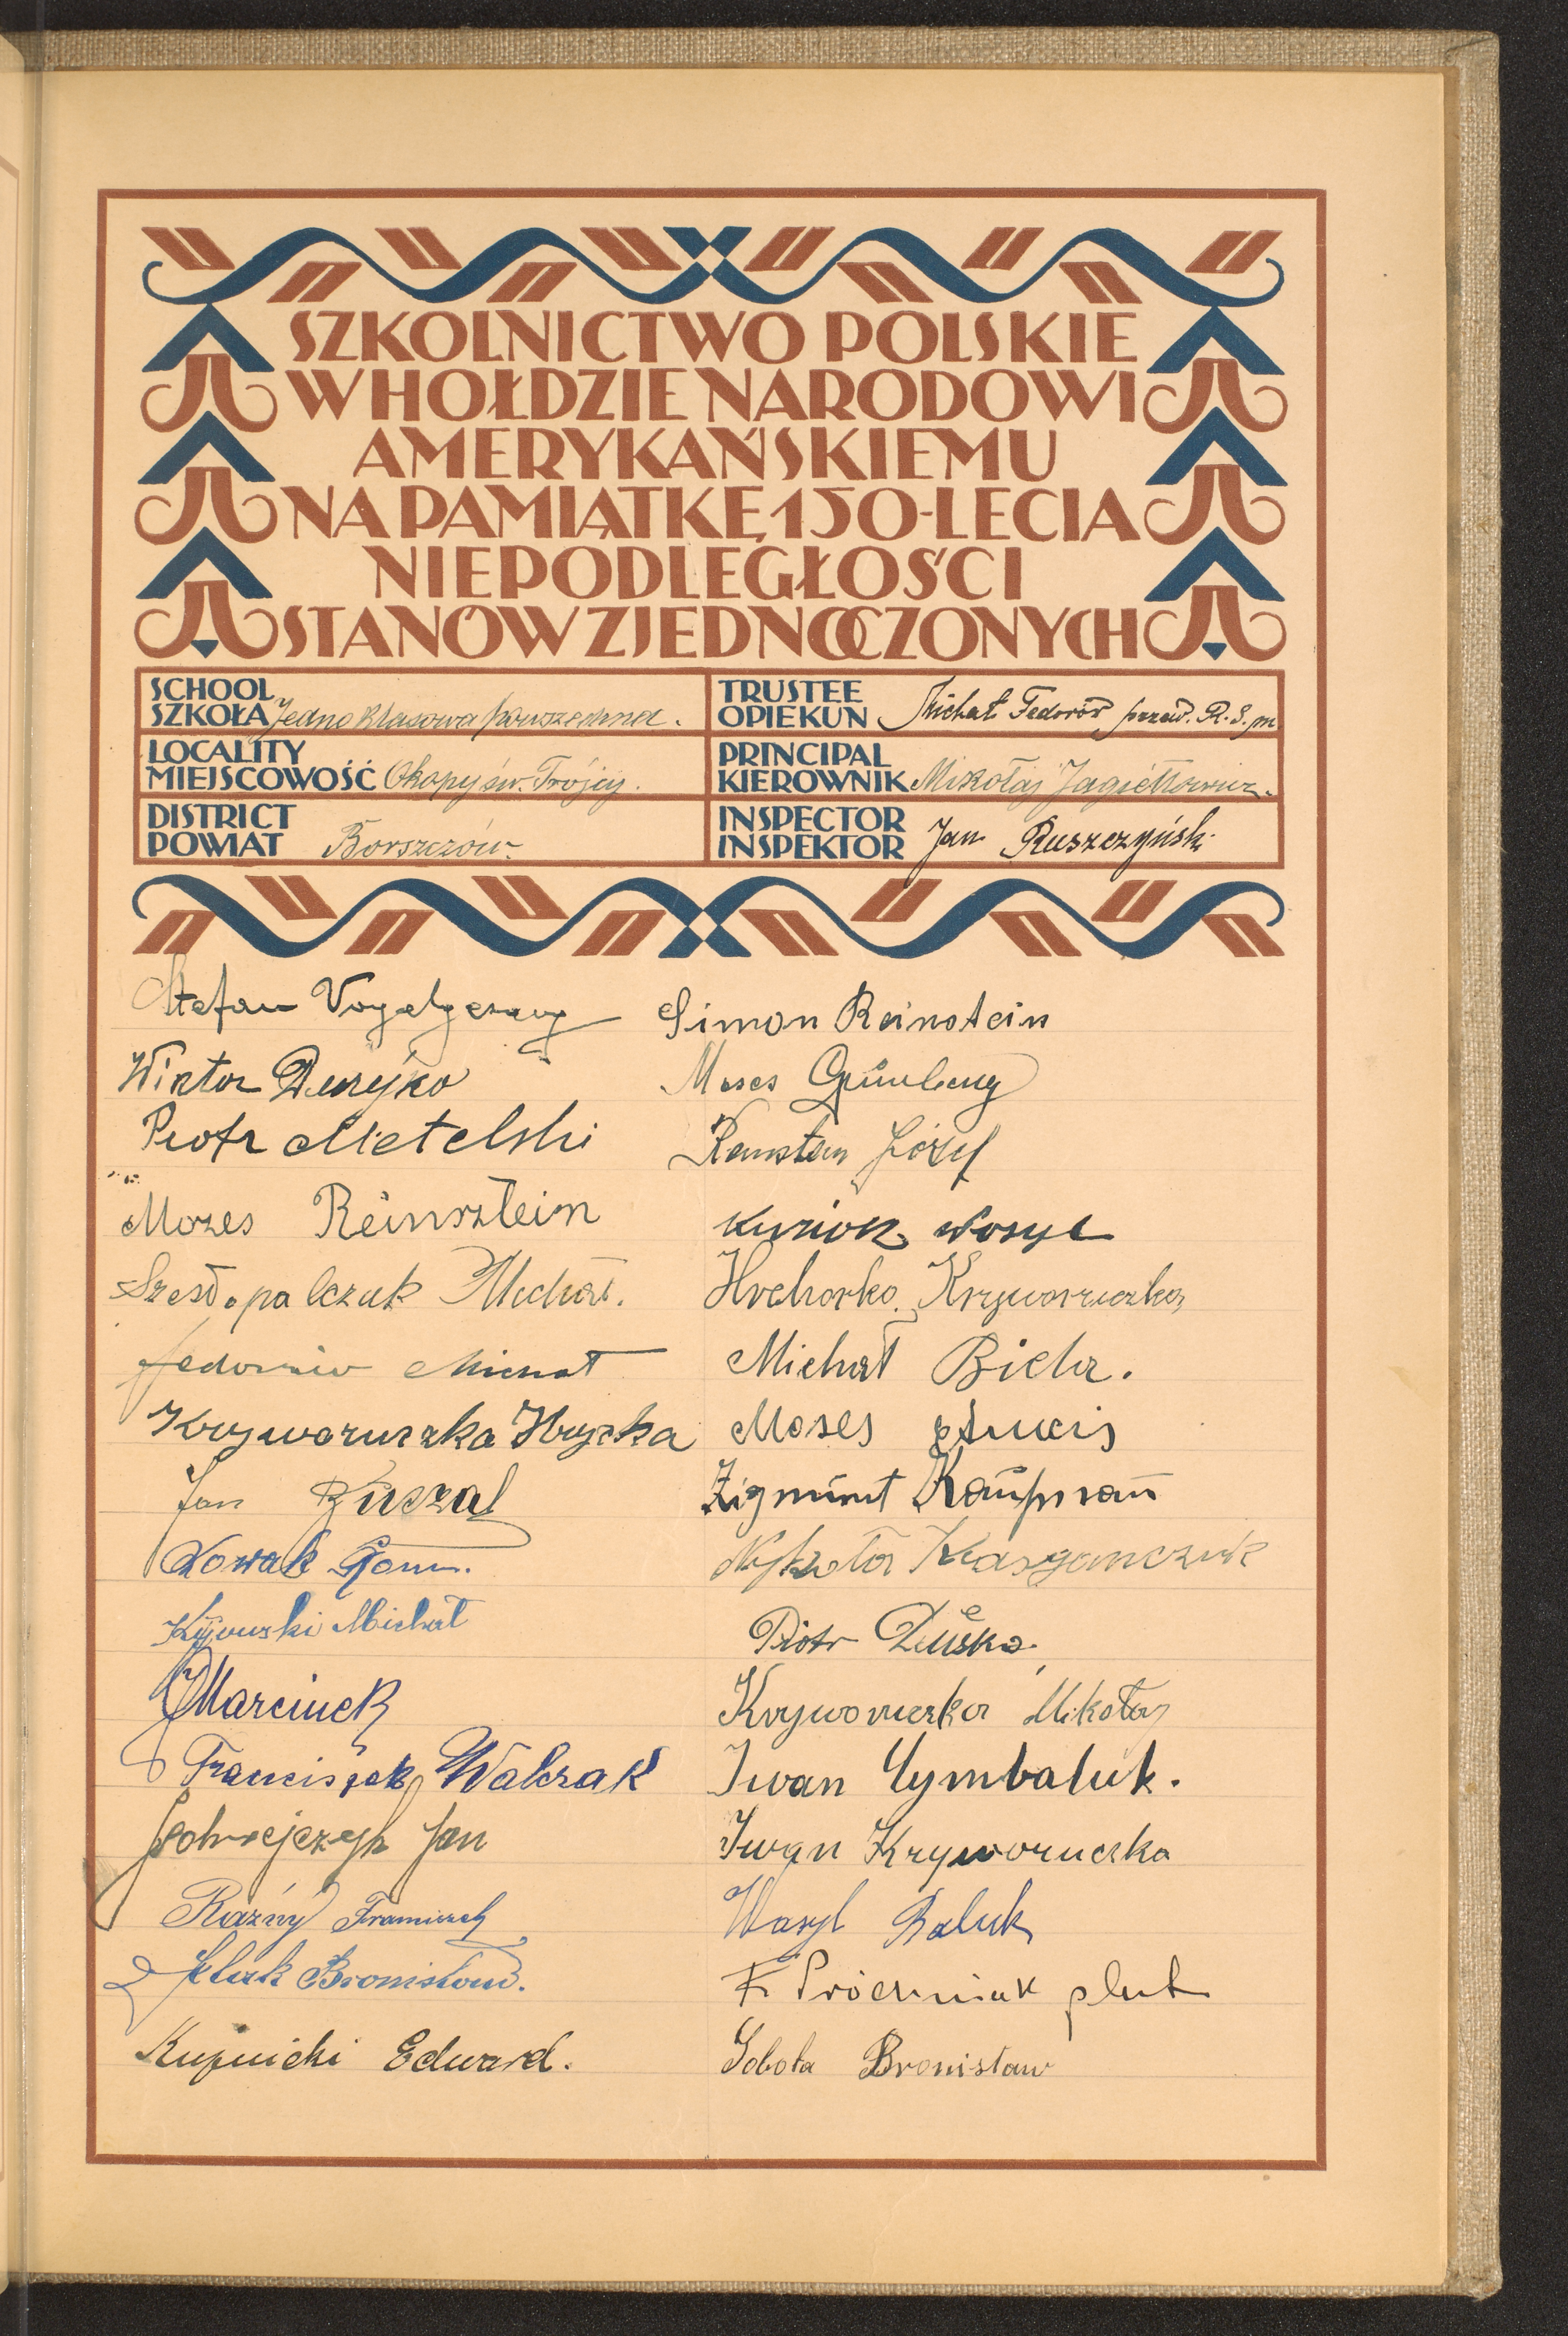 SZKOLNICTWO POLSKIE
W HOŁDZIE NARODOWI
AMERYKAŃSKIEMU
NA PAMIĄTKĘ 150-LECIA
NIEPODLEGŁOŚCI
STANÓW ZJEDNOCZONYCH
SCHOOL
SZKOŁA Jedno klasowa powszechna.
TRUSTEE
OPIEKUN Michał Fedorów przew. R. S. m
LOCALITY
MIEJSCOWOŚĆ Okopy św. Trójcy.
PRINCIPAL
KIEROWNIK Mikołaj Jagiełłowicz.
DISTRICT
POWIAT Borszczów.
INSPECTOR
INSPEKTOR Jan Ruszczyński
Stefan Vogelgesang
Wiktor Duryjko
Piotr Metelski
Mozes Reinsztein
Szesłopalczuk Michał.
Fedorziw Michał
Kryworuczka Hryćka
Jan Kuczal
Nowak
Kijowski Michał
Marcinek
Franciszek Walczak
Jan
Raźny Franciszek
Bronisław.
Kupnicki Edward.
Simon Reinstein
Moses Grünberg
Józef
Kuziok Wosyl
Hrehorko Kryworuczka
Michał Biela.
Moses
Zigmunt Kaufman
Kasyanczuk
Piotr Duśko.
Kryworuczka Mikołaj
Iwan Cymbaluk.
Iwan Kryworuczka
Wasyl Baluk
F. Próchniak plut
Sobota Bronisław